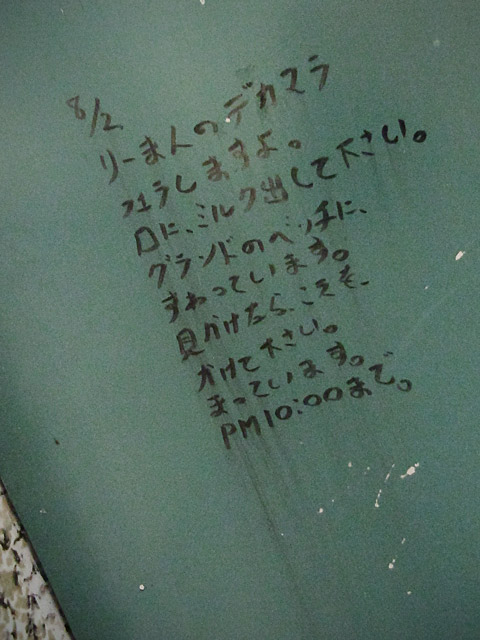 8/2
リーま人のデカマラ
フェラしますよ。
口に、ミルク出して下さい。
グランドのベッチに、
すわっています。
見かけたら、こえを、
かけて下さい。
まっています。
PM10:00まで。